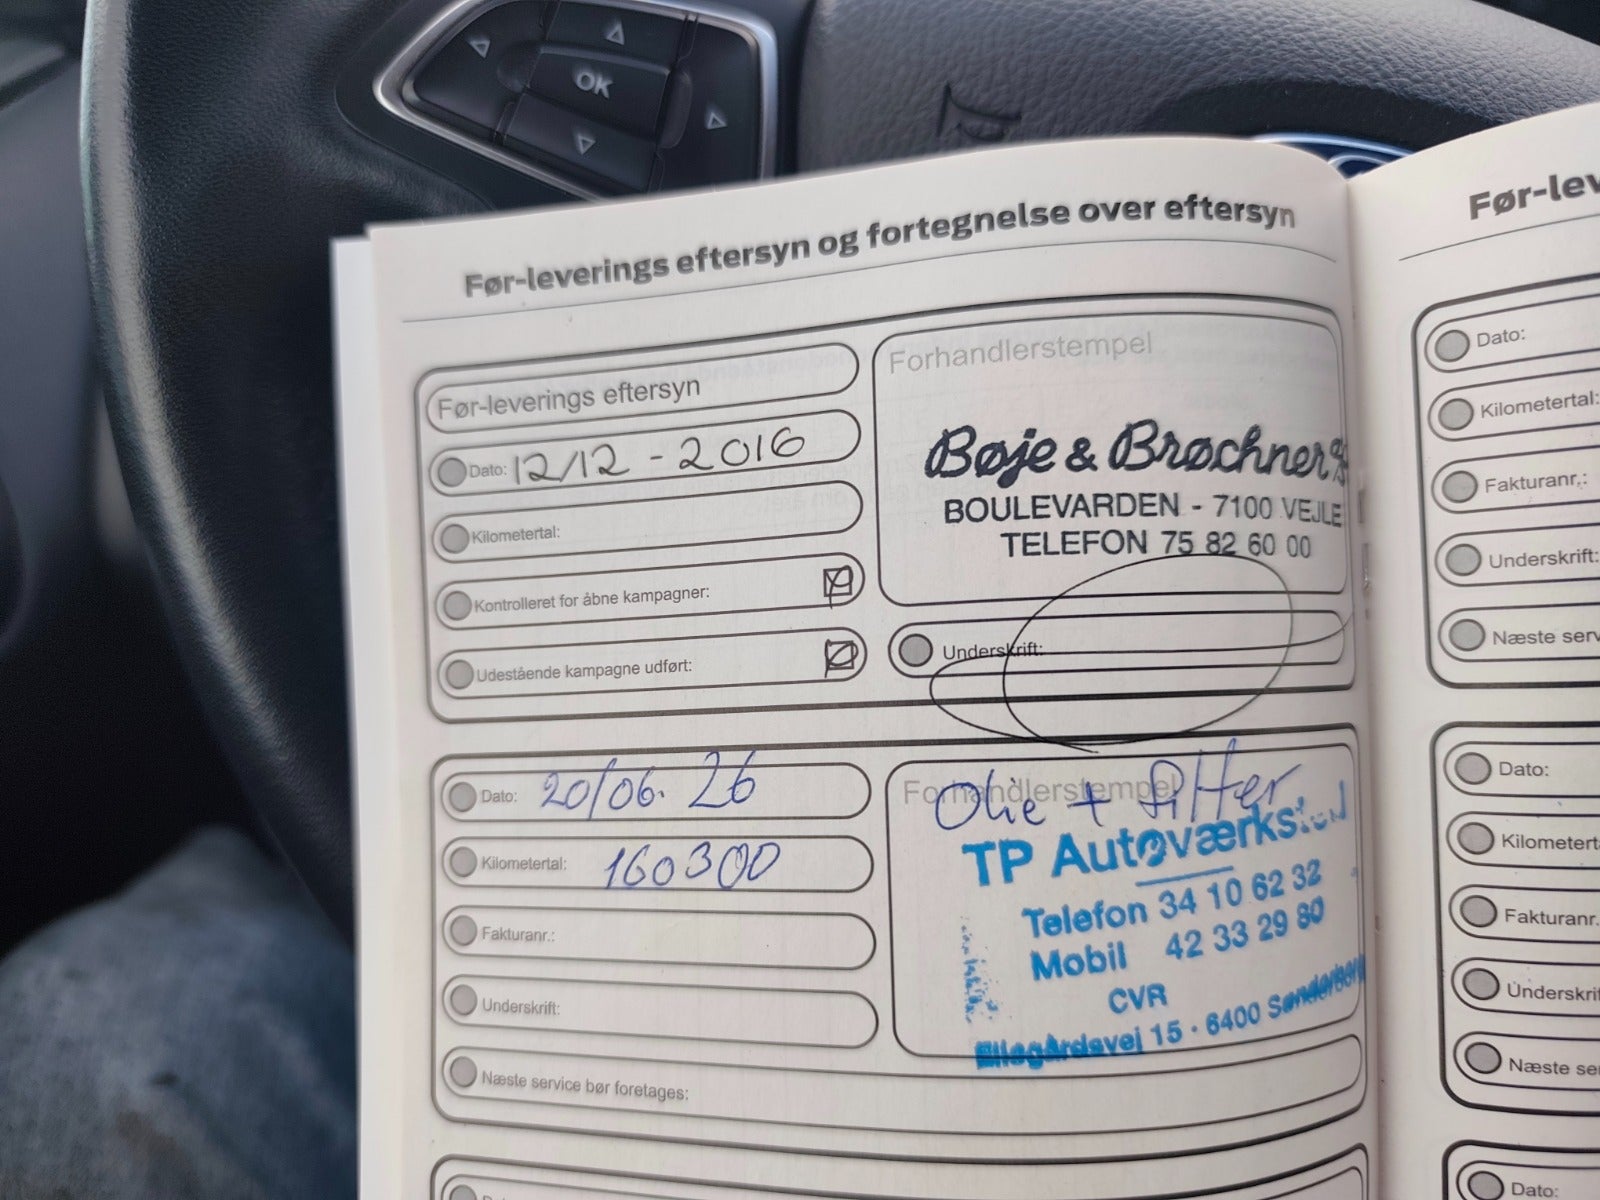 OK
Før-leverings eftersyn og fortegnelse over eftersyn
Før-leverings eftersyn
Dato: 12/12 - 2016
Kilometertal:
Kontrolleret for åbne kampagner:
Udestående kampagne udført:
Forhandlerstempel
Bøje & Brøchner
BOULEVARDEN - 7100 VEJLE
TELEFON 75 82 60 00
Underskrift:
Dato: 20/06. 26
Kilometertal: 160300
Fakturanr.:
Underskrift:
Næste service bør foretages:
Forhandlerstempel
Olie + filter
TP Autoværksted
Telefon 34 10 62 32
Mobil 42 33 29 80
CVR
Ellegårdsvej 15 · 6400 Sønderborg
Før-lev
Dato:
Kilometertal:
Fakturanr.:
Underskrift:
Næste serv
Dato:
Kilometert
Fakturanr.
Underskri
Næste se
Dato: